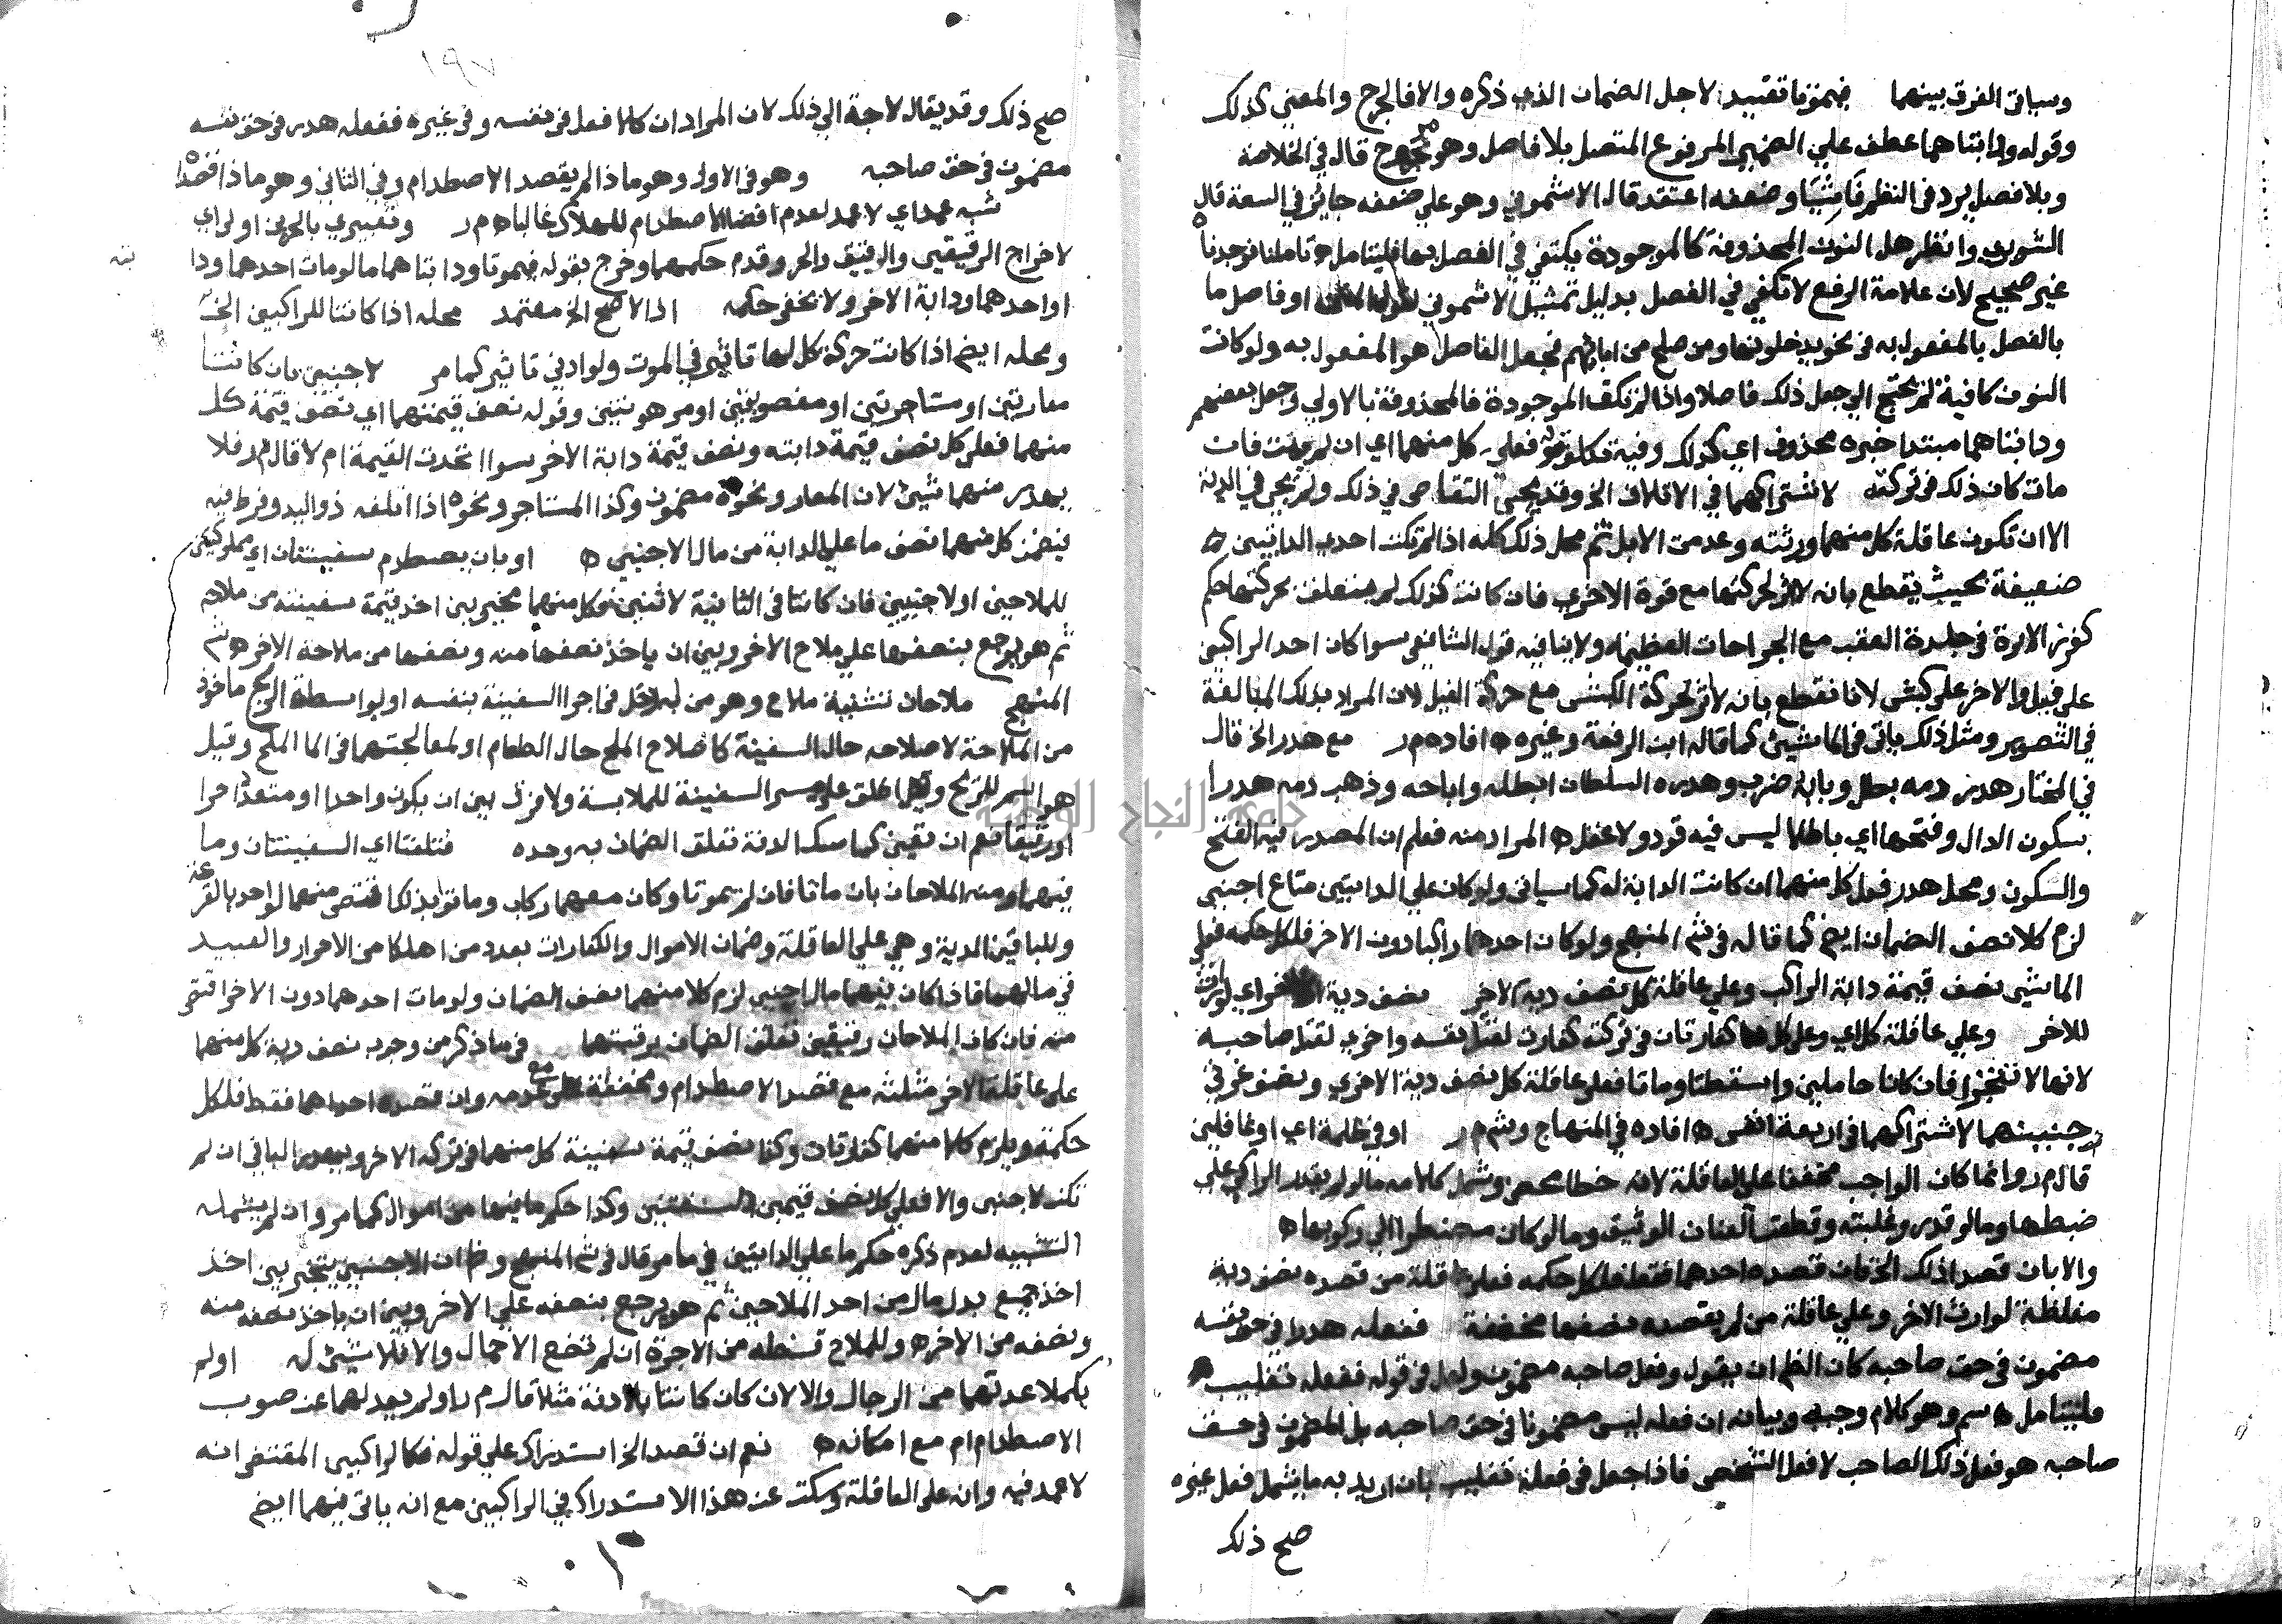 وسياتي الفرق بينهما فيموتا تقييد لاجل الضمان الذي ذكره والا فالجرح والمعني كذلك
وقوله ودابتاهما عطف علي الضمير المرفوع المتصل بلا فاصل وهو قال في الخلاصة
وبلا فصل يرد في النظم فاشيا وضعفه اعتقد قال الاشموني وهو علي ضعفه جايز في السعة قال
الشوبري وانظر هل النون المحذوفة كالموجودة يكتفي في الفصل بها فليتامل ه تاملنا فوجدنا
غير صحيح لان علامة الرفع لا تكفي في الفصل بدليل تمثيل الاشموني او فاصل ما
بالفصل بالمفعول به في نحو يدخلونها ومن صلح من ابائهم فجعل الفاصل هو المفعول به ولو كانت
النون كافية لم يحتج الي جعل ذلك فاصلا واذا لم تكف الموجودة فالمحذوفة بالاولي وجعل بعضهم
ودابتاهما مبتدا خبره محذوف اي كذلك وفيه قوله فعلي كل منهما اي ان لم يمت فان
مات كان ذلك في تركته لاشتراكهما في الاتلاف الخ وقد يجئ التقاص في ذلك ولم يجئ في الدية
الا ان تكون عاقلة كل منهما ورثته وعدمت الابل ثم محل ذلك كله اذا لم تكن احدي الدابتين ه
ضعيفة بحيث يقطع بان لا اثر لحركتها مع قوة الاخري فان كانت كذلك لم يتعلق بحركتها حكم
كغرز الابرة في جلدة العقب مع الجراحات العظيمة ولا ينافيه قول الشافعي سوا كان احد الراكبين
علي فيل والاخر علي كبش لانا نقطع بان لا اثر لحركة الكبش مع حركة الفيل لان المراد بذلك المبالغة
في التصوير ومثل ذلك ياتي في الماشيين كما قاله ابن الرفعة وغيره ه افاده م ر مع هدر الخ قال
في المختار هدر دمه بطل وبابه ضرب وهدره السلطان ابطله واباحه وذهب دمه هدرا
بسكون الدال وفتحها اي باطلا ليس فيه قود ولا عقل ه المراد منه فعلم ان المصدر فيه الفتح
والسكون ومحل هدر فعل كل منهما ان كانت الدابة له كما سياتي ولو كان علي الدابتين متاع اجنبي
لزم كلا نصف الضمان ايضا كما قاله في شرح المنهج ولو كان احدهما راكبا دون الاخر فلكل حكمه فعلي
الماشي نصف قيمة دابة الراكب وعلي عاقلة كل نصف دية الاخر نصف دية الاخر اي لوارث
للاخر وعلي عاقلة كل اي وعلي كل كفارتان في تركته كفارة لقتل نفسه واخري لقتل صاحبه
لانها لا تتجزا فان كانتا حاملين واسقطتا وماتا فعلي عاقلة كل نصف دية الاخري ونصف غرتي
جنينيهما لاشتراكهما في اربعة انفس ه افاده في المنهاج وشرح م ر او في ظلمة اي او غافلين
قال م ر وانما كان الواجب مخففا علي العاقلة لانه خطا محض وشمل كلامه ما لو لم يقدر الراكب علي
ضبطها وما لو قدر وغلبته وقطعت العنان الوثيق وما لو كان مضطرا الي ركوبها ه
والا بان قصدا ذلك الخ فان قصده احدهما فقط فلكل حكمه فعلي عاقلة من قصده نصف دية
مغلظة لوارث الاخر وعلي عاقلة من لم يقصده نصفها مخففة ففعله هدرا في حق نفسه
مضمون في حق صاحبه كان الظاهر ان يقول وفعل صاحبه مضمون ولعل في قوله ففعله تغليب
فليتامل ه سم وهو كلام وجيه وبيانه ان فعله ليس مضمونا في حق صاحبه بل المضمون في حق
صاحبه هو فعل ذلك الصاحب لا فعل الشخص فاذا جعل في فعله تغليب بان اريد به ما يشمل فعل غيره
صح ذلك
١٩٧
صح ذلك وقد يقال لا حاجة الي ذلك لان المراد ان كلا فعل في نفسه وفي غيره ففعله هدر في حق نفسه
مضمون في حق صاحبه وهو في الاول وهو ما اذا لم يقصد الاصطدام وفي الثاني وهو ما اذا قصدا
شبه عمد اي لا عمد لعدم افضا الاصطدام للهلاك غالبا ه م ر وتعبيري بالحرين اولي اي
لاخراج الرقيقين والرقيق والحر وقدم حكمهما وخرج بقوله فيموتا ودابتاهما ما لو مات احدهما ودا
او احدهما ودابة الاخر ولا يخفي حكمه اذ الاصح الخ معتمد محله اذا كانتا للراكبين الخ
ومحله ايضا اذا كانت حركة كل لها تاثير في الموت ولو ادني تاثير كما مر لاجنبيين بان كانتا
معارتين او مستاجرتين او مغصوبتين او مرهونتين وقوله نصف قيمتهما اي نصف قيمة كل
منهما فعلي كل نصف قيمة دابته ونصف قيمة دابة الاخر سوا اتحدت القيمة ام لا قال م ر فلا
يهدر منهما شئ لان المعار ونحوه مضمون وكذا المستاجر ونحوه اذا اتلفه ذو اليد وفرط فيه
يضمن كل منهما نصف ما علي الدابة من مال الاجنبي ه او بان يصطدم سفينتان اي مملوكتين
للملاحين او لاجنبيين فان كانتا في الثانية لاثنين فكل منهما مخير بين اخذ قيمة سفينته من ملاحه
ثم هو يرجع بنصفها علي ملاح الاخر وبين ان ياخذ نصفها منه ونصفها من ملاحه الاخر ه شرح
المنهج ملاحان تثنية ملاح وهو من له دخل في اجرا السفينة بنفسه او بواسطة الريح ماخوذ
من الملاحة لاصلاحه حال السفينة كاصلاح الملح حال الطعام او لمعالجتهما في الما الملح وقيل
هو اسم للريح وانما اطلق علي مسير السفينة للملابسة ولا فرق بين ان يكون واحدا او متعددا حرا
او رقيقا نعم ان تعين كماسك الدفة تعلق الضمان به وحده فتلفتا اي السفينتان وما
فيهما ومنه الملاحان بان ماتا فان لم يموتا وكان معهما ركاب وماتوا بذلك اقتص منهما لواحد بالقرعة
وللباقين الدية وهي علي العاقلة وضمان الاموال والكفارات بعدد من اهلكا من الاحرار والعبيد
في مالهما فاذا كان فيهما مال اجنبي لزم كلا منهما نصف الضمان ولو مات احدهما دون الاخر اقتص
منه فان كان الملاحان رقيقين تعلق الضمان برقبتهما في ما ذكر من وجوب نصف دية كل منهما
علي عاقلة الاخر مثلثة مع قصد الاصطدام ومخففة مع عدمه وان قصده احدهما فقط فلكل
حكمه ويلزم كلا منهما كفارتان وكذا نصف قيمة سفينة كل منهما في تركة الاخر ويهدر الباقي ان لم
تكن لاجنبي والا فعلي كل نصف قيمتي السفينتين وكذا حكم ما فيها من اموال كما مر وان لم يشمله
التشبيه لعدم ذكره حكم ما علي الدابتين في ما مر قال في شرح المنهج وظاهر ان الاجنبيين يتخير بين اخذ
اخذ جميع بدل مال من احد الملاحين ثم هو يرجع بنصفه علي الاخر وبين ان ياخذ نصفه منه
ونصفه من الاخر ه وللملاح قسطه من الاجرة ان لم تخع الاحمال والا فلا شئ له او لم
يكملا عدتهما من الرجال والالات كان كانتا بلا دفة مثلا قال م ر او لم يعدلهما عن صوب
الاصطدام ام مع امكانه ه نعم ان قصد الخ استدراك علي قوله فكالراكبين المقتضي انه
لا عمد فيه وانه علي العاقلة وسكت عن هذا الاستدراك في الراكبين مع انه ياتي فيهما ايضا